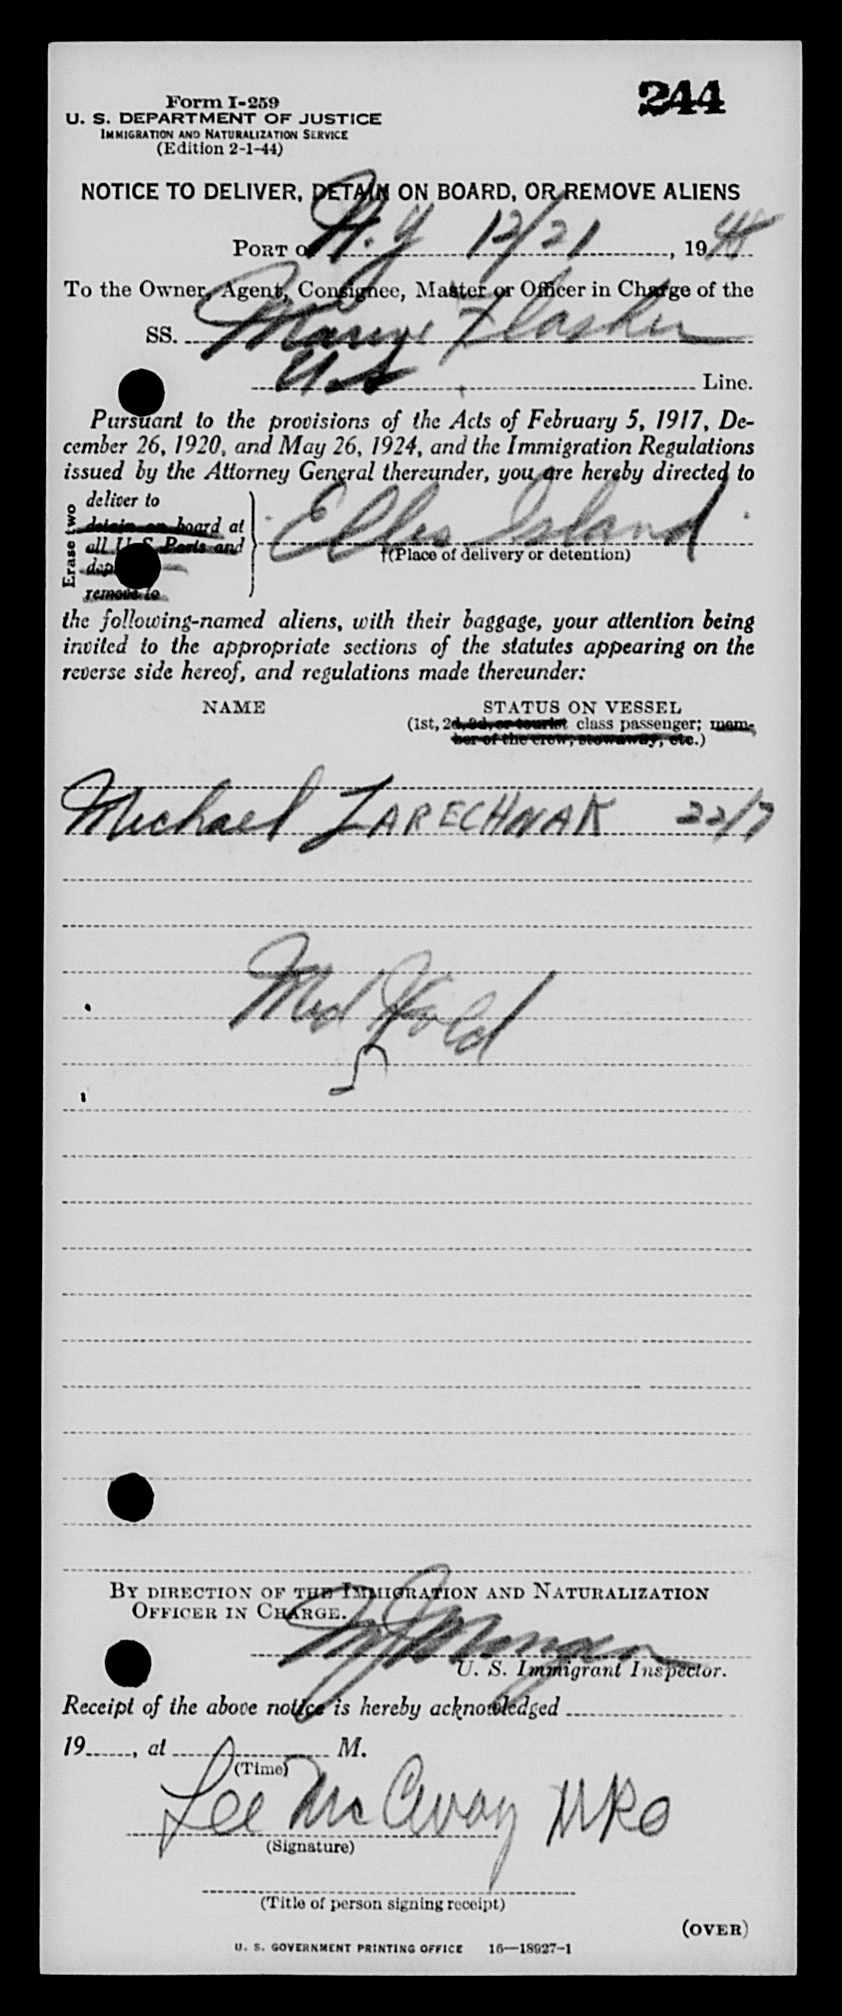 244
Form I-259
U. S. DEPARTMENT OF JUSTICE
IMMIGRATION AND NATURALIZATION SERVICE
(Edition 2-1-44)
NOTICE TO DELIVER, DETAIN ON BOARD, OR REMOVE ALIENS
PORT of N.Y 12/21, 1948
To the Owner, Agent, Consignee, Master or Officer in Charge of the
SS. Marine Flasher
U.S. Line.
Pursuant to the provisions of the Acts of February 5, 1917, De-
cember 26, 1920, and May 26, 1924, and the Immigration Regulations
issued by the Attorney General thereunder, you are hereby directed to
Erase two
deliver to
detain on board at
all U S Ports and
remove to
Ellis Island
†(Place of delivery or detention)
the following-named aliens, with their baggage, your attention being
invited to the appropriate sections of the statutes appearing on the
reverse side hereof, and regulations made thereunder:
NAME STATUS ON VESSEL
(1st, 2d, 3d, or tourist class passenger; mem-
ber of the crew, stowaway, etc.)
Michael ZARECHNAK 22/7
Med Hold
BY DIRECTION OF THE IMMIGRATION AND NATURALIZATION
OFFICER IN CHARGE.
U. S. Immigrant Inspector.
Receipt of the above notice is hereby acknowledged
19 , at M.
(Time)
Lee McAvoy
(Signature)
(Title of person signing receipt)
(OVER)
U. S. GOVERNMENT PRINTING OFFICE 16—18927-1